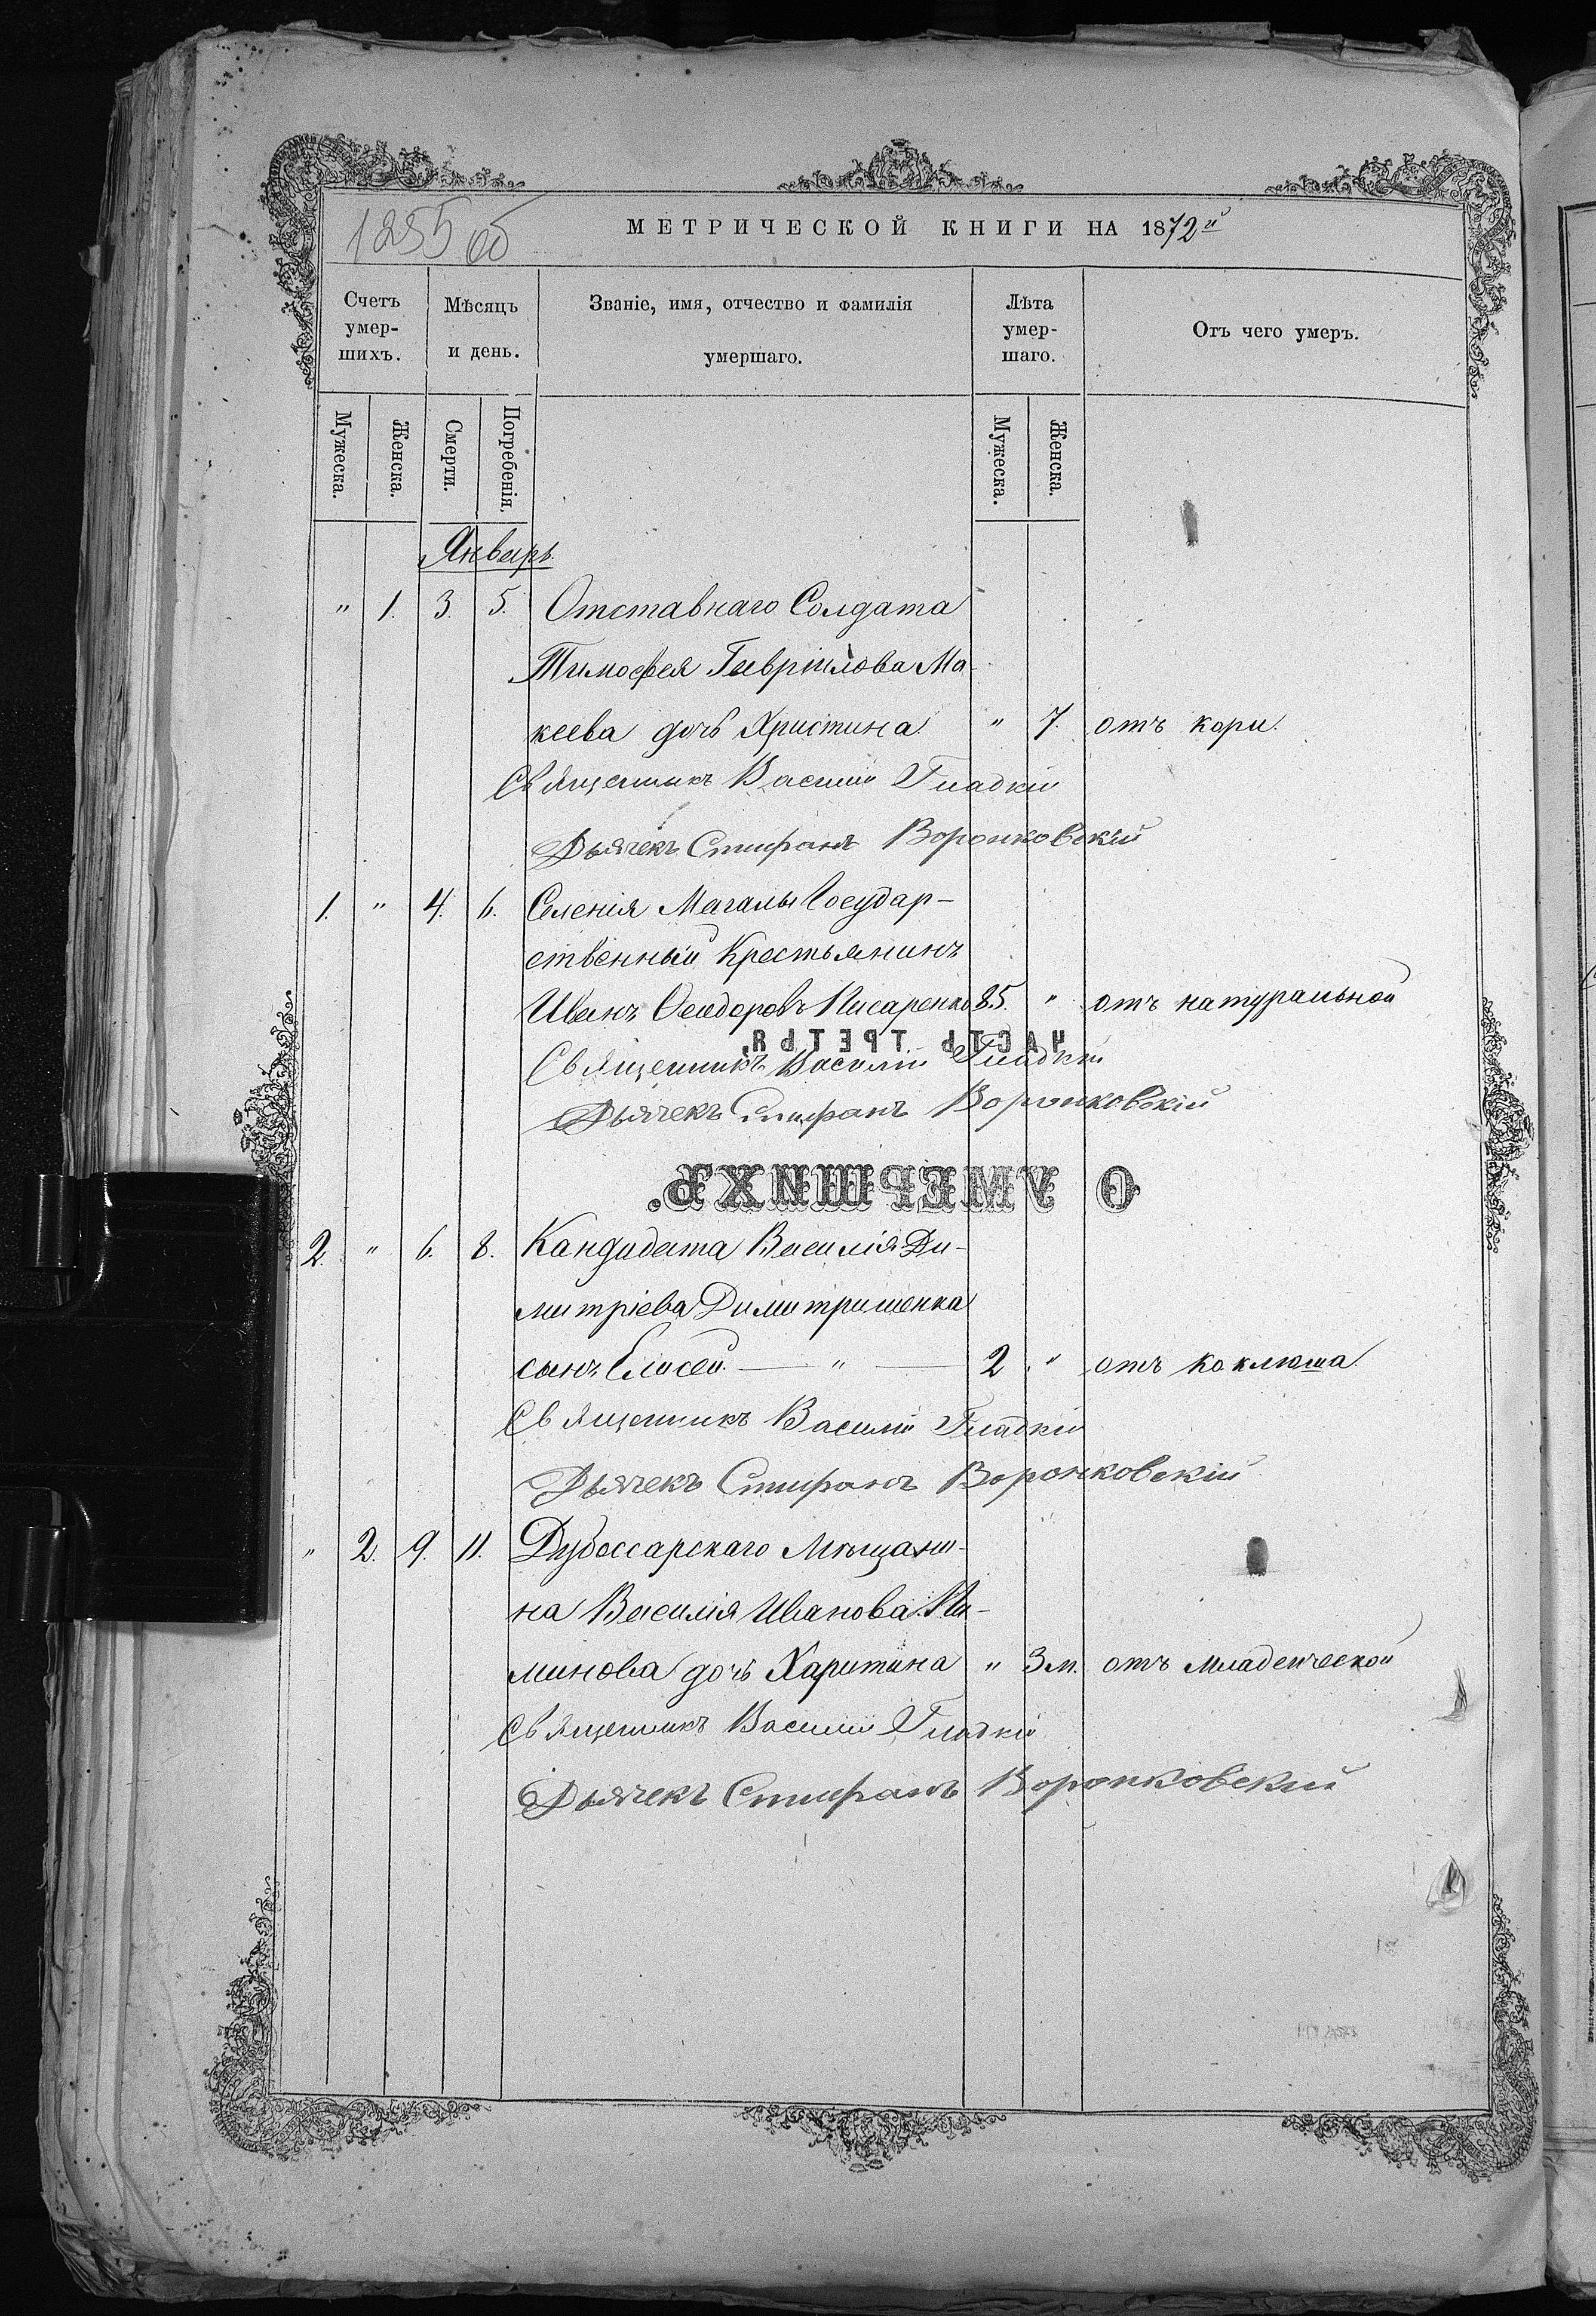 1255 об
МЕТРИЧЕСКОЙ КНИГИ НА 1872й
Счетъ умер-шихъ.
Мѣсяцъ и день.
Званіе, имя, отчество и фамилія умершаго.
Лѣта умер-шаго.
Отъ чего умеръ.
Мужеска. Женска. Смерти. Погребенія. Мужеска. Женска.
Январь
" 1. 3. 5. Отставнаго Солдата
Тимофея Гаврілова Ма-
кеева дочь Христина " 7. отъ кори.
Священникъ Василій Гладкій
Дьячекъ Стефанъ Воронковскій
1. " 4. 6. Селенія Магалы Государ-
ственный Крестьянинъ
Иванъ Феодоровъ Писаренко 85. " отъ натуральной
ЧАСТЬ ТРЕТЬЯ,
Священникъ Василій Гладкій
Дьячекъ Стефанъ Воронковскій
О УМЕРШИХЪ.
2. " 6. 8. Кандидата Василія Ди-
митріева Димитришенка
сынъ Елисей. — " — 2 " отъ коклюша.
Священникъ Василій Гладкій
Дьячекъ Стефанъ Воронковскій
" 2. 9. 11. Дубоссарскаго Мѣщани-
на Василія Иванова
минова дочь Харитина " 3 м. отъ младенческой
Священникъ Василій Гладкій
Дьячекъ Стефанъ Воронковскій